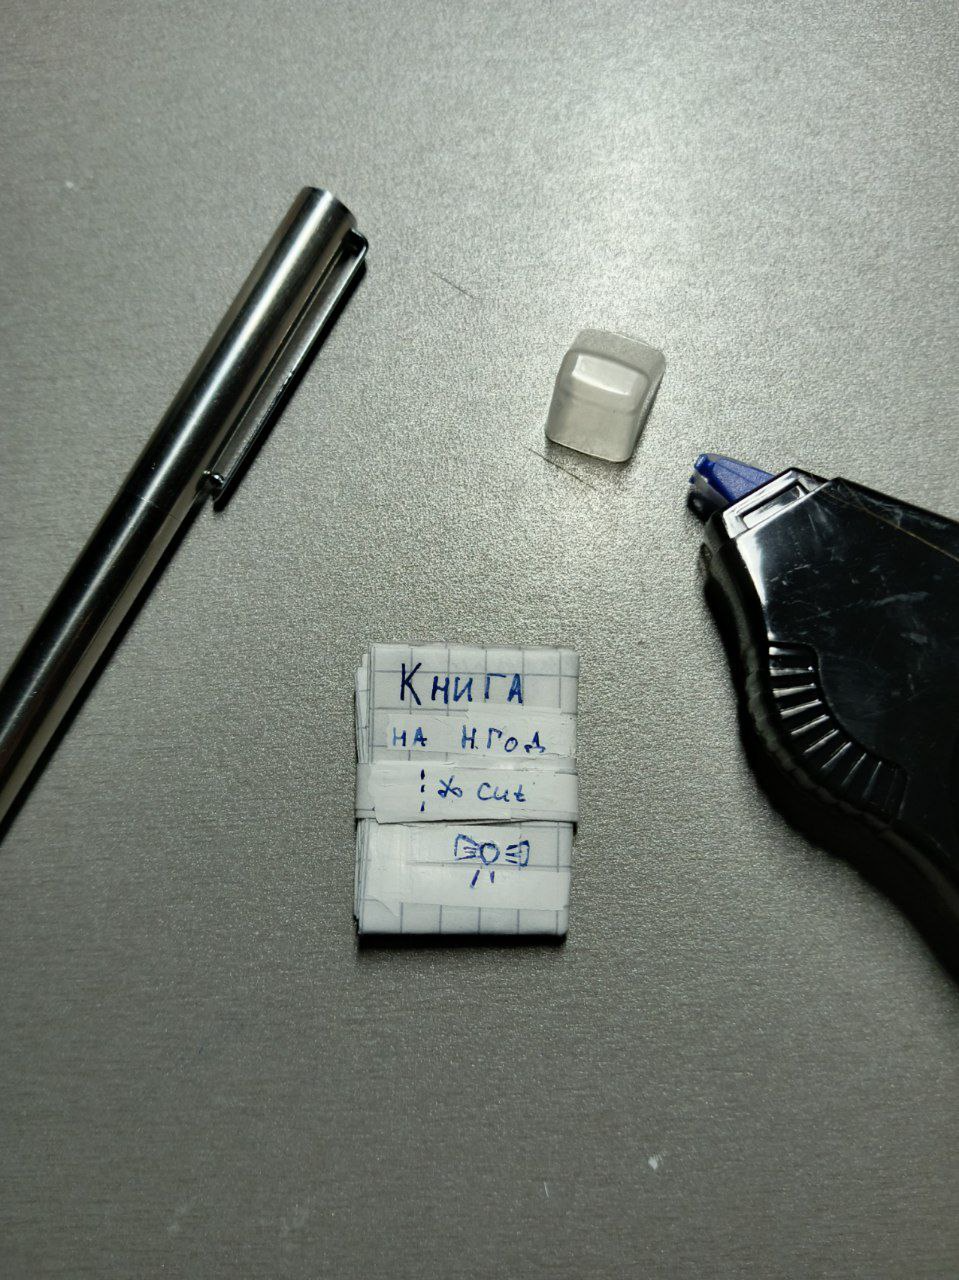 Книга
на Н.Год
cut